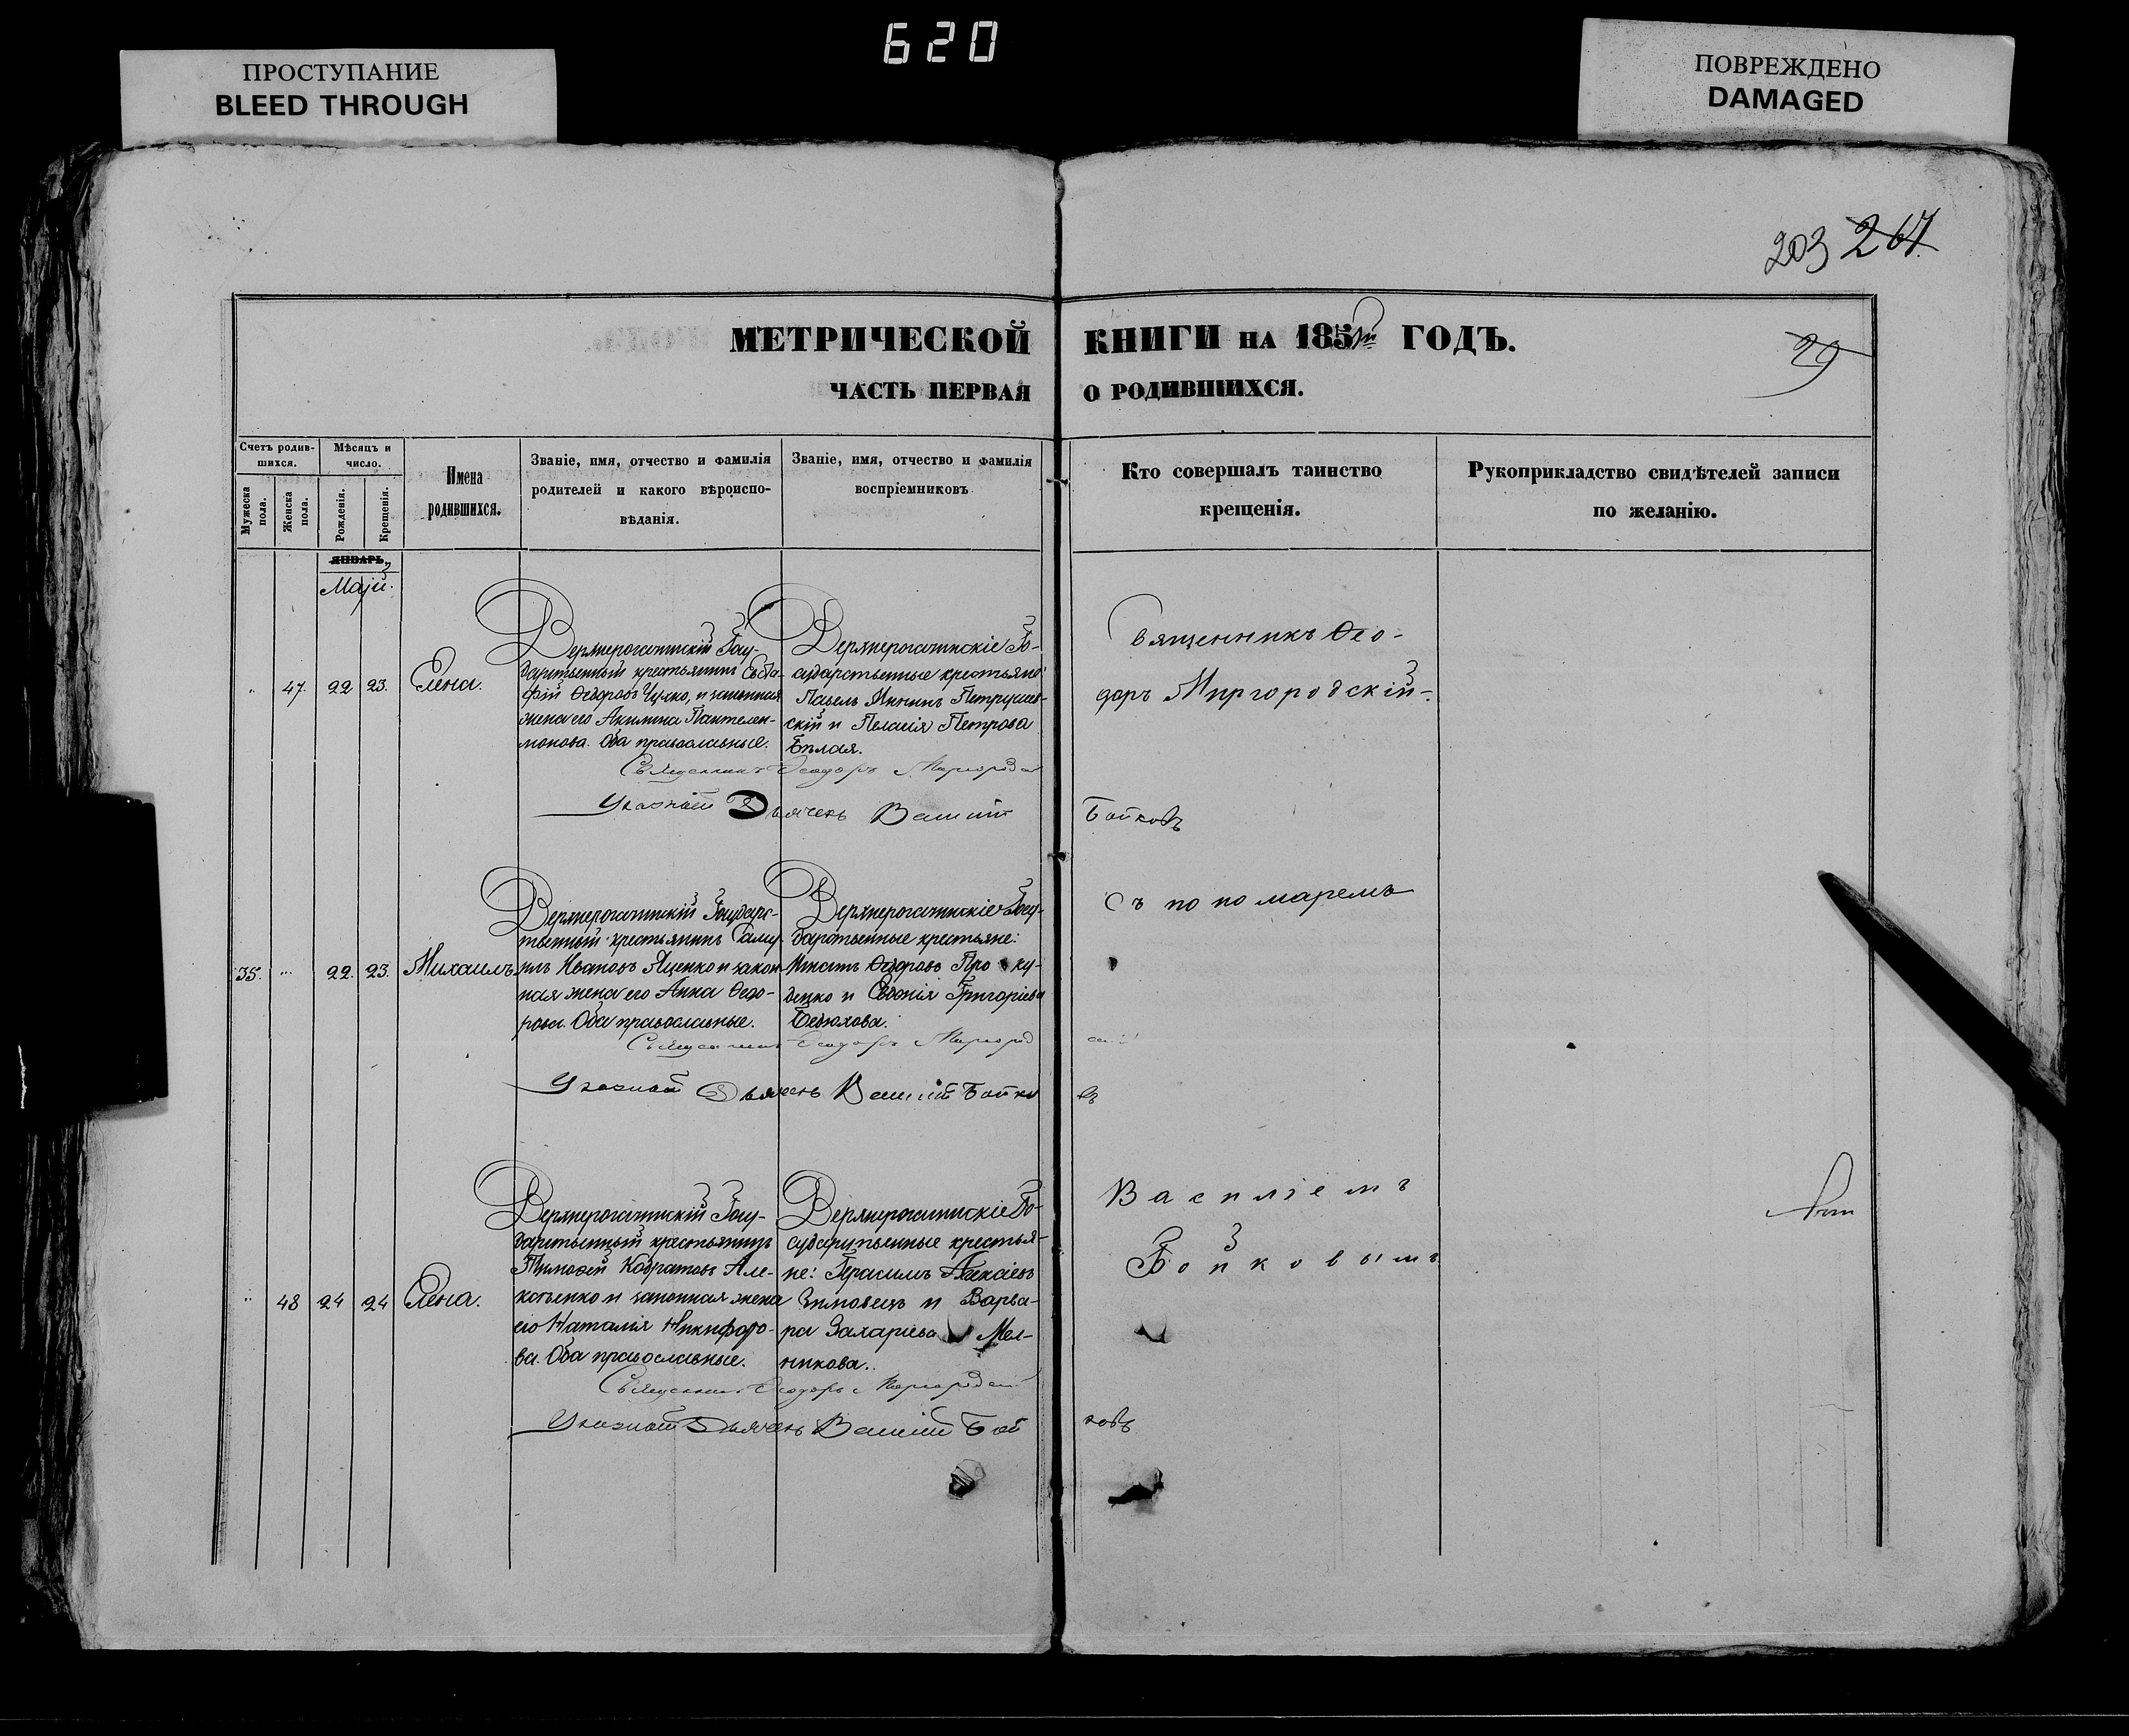 620
ПРОСТУПАНИЕ
BLEED THROUGH
ПОВРЕЖДЕНО
DAMAGED
203 267.
МЕТРИЧЕСКОЙ КНИГИ НА 185 ГОДЪ.
29
ЧАСТЬ ПЕРВАЯ О РОДИВШИХСЯ.
Счетъ родив-
шихся.
Мужеска
пола.
Женска
пола.
Мѣсяцъ и
число.
Рожденія.
Крещенія.
Имена
родившихся.
Званіе, имя, отчество и фамилія
родителей и какого вѣроиспо-
вѣданія.
Званіе, имя, отчество и фамилія
воспріемниковъ
Кто совершалъ таинство
крещенія.
Рукоприкладство свидѣтелей записи
по желанію.
ЯНВАРЬ.
Маій.
47. 22 23. Елена.
Верхнерогачикскій Госу-
дарственный крестьянинъ
Ѳедоровъ и законная
жена его Акилина Пантелеи-
монова. Оба православные.
Верхнерогачикскіе Го-
сударственные крестьяне
Павелъ Мининъ
и Пелагія Петрова
Бѣлая.
Священникъ Ѳео-
доръ Миргородскій
Священникъ Ѳеодоръ Миргородскій
Указный Дьячекъ Василій Бойковъ
35. 22. 23. Михаилъ.
Верхнерогачикскій Государс-
твенный крестьянинъ Саму-
илъ Ивановъ Яценко и закон-
ная жена его Анна Ѳедо-
рова. Оба православные.
Верхнерогачикскіе Госу-
дарственные крестьяне:
Никита Ѳедоровъ Про ку-
денко и Евдокія Григорьева
съ пономаремъ
Священникъ Ѳеодоръ Миргородскій
Указный Дьячекъ Василій Бойковъ
48 24 24 Елена.
Верхнерогачикскій Госу-
дарственный крестьянинъ
Тимоѳей Кодратовъ Але-
ксѣенко и законная жена
его Наталія Никифоро-
ва. Оба православные.
Верхнерогачикскіе Го-
сударственные крестья-
не: Герасимъ Алексѣевъ
Зимовецъ и Варва-
ра Захаріева Мел-
никова.
Василіемъ
Бойковымъ
Священникъ Ѳеодоръ Миргородскій
Указный Дьячекъ Василій Бойковъ